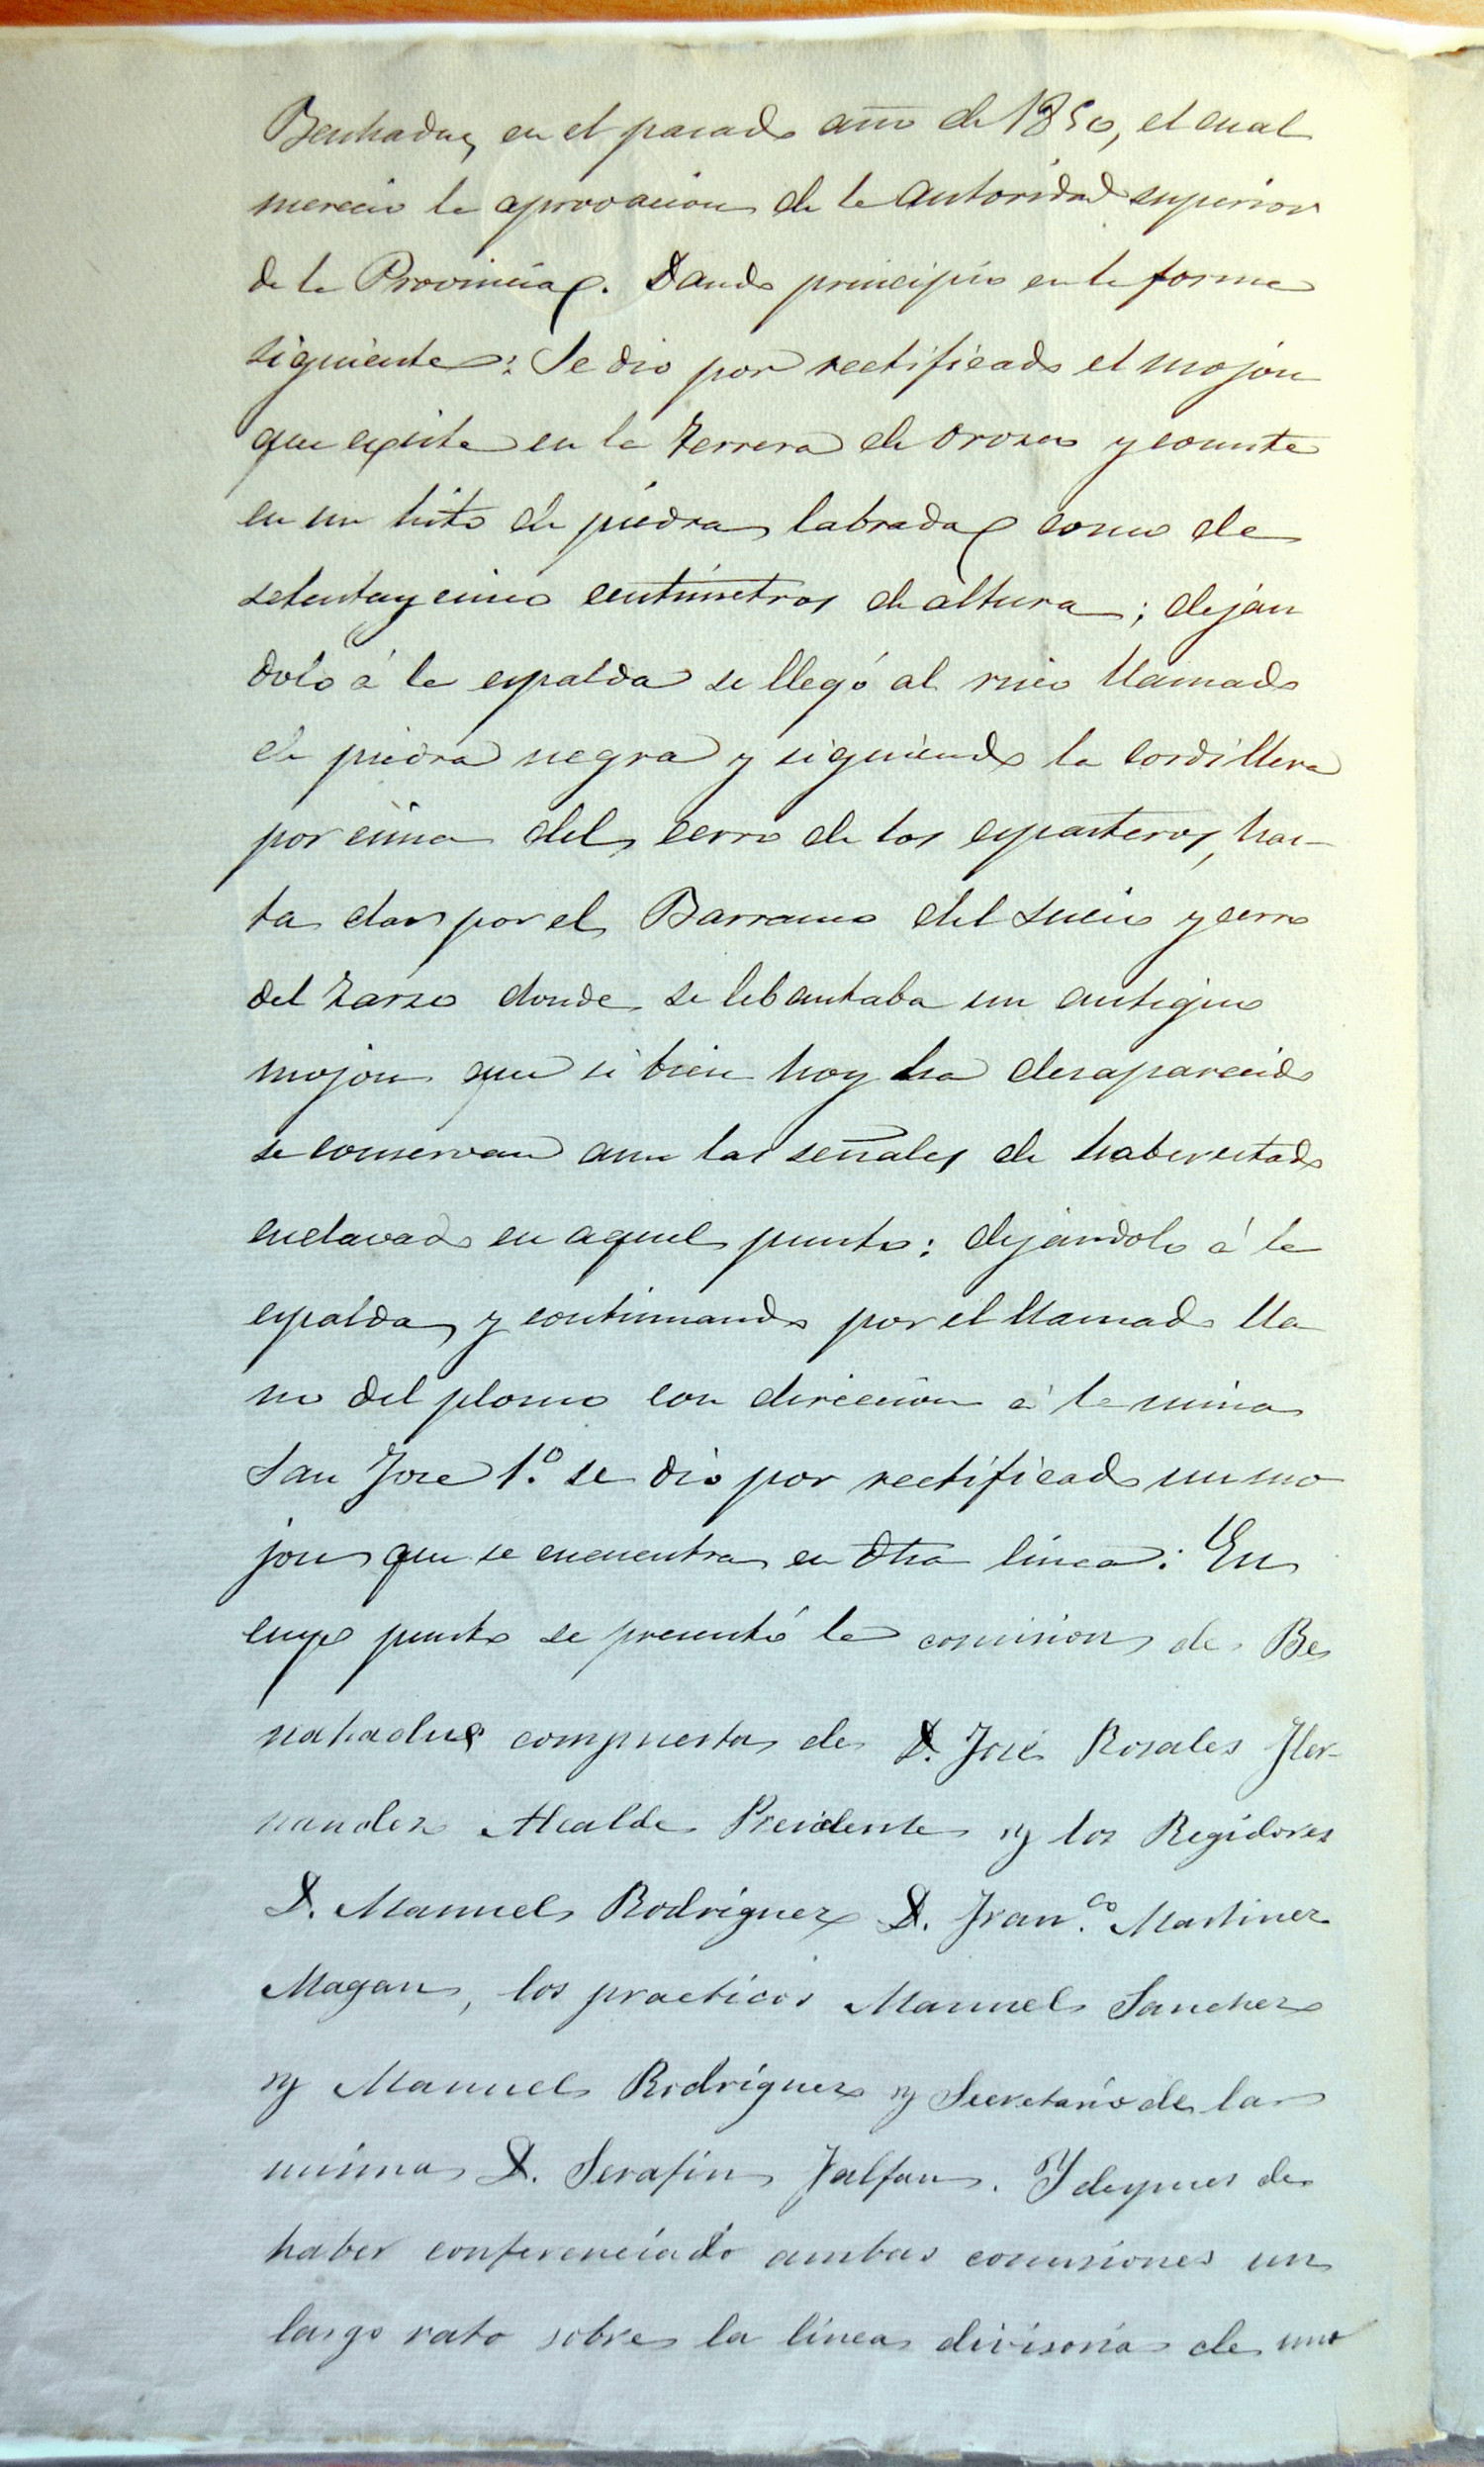 Benhadux en el pasado año de 1850, el cual
merecio la aprovacion de la autoridad superior
de la Provincia. Dando principio en la forma
siguiente: Se dio por rectificado el mojon
que existe en la Terrera de Orozco y consiste
en un hito de piedra labrada como de
setenta y cinco centimetros de altura; dejan
dolo á la espalda se llegó al risco llamado
de piedra negra y siguiendo la cordillera
por cima del cerro de los esparteros, has-
ta dar por el Barranco del Sucio y cerro
del Zarzo donde se lebantaba un antiguo
mojon que si bien hoy ha desaparecido
se conservan aun las señales de haber estado
enclavado en aquel punto: dejándolo á la
espalda y continuando por el llamado lla
no del plomo con direccion á la mina
San Jose 1º. se dio por rectificado un mo
jon que se encuentra en dha linea: En
cuyo punto se presentó la comision de Be
nahadux compuesta de D. José Rosales Her-
nandez Alcalde Presidente y los Regidores
D. Manuel Rodriguez D. Fran.co Martinez
Magan, los practicos Manuel Sanchez
y Manuel Rodriguez y Secretario de la
misma D. Serafin Jalfon. Y despues de
haber conferenciado ambas comisiones un
largo rato sobre la linea divisoria de uno